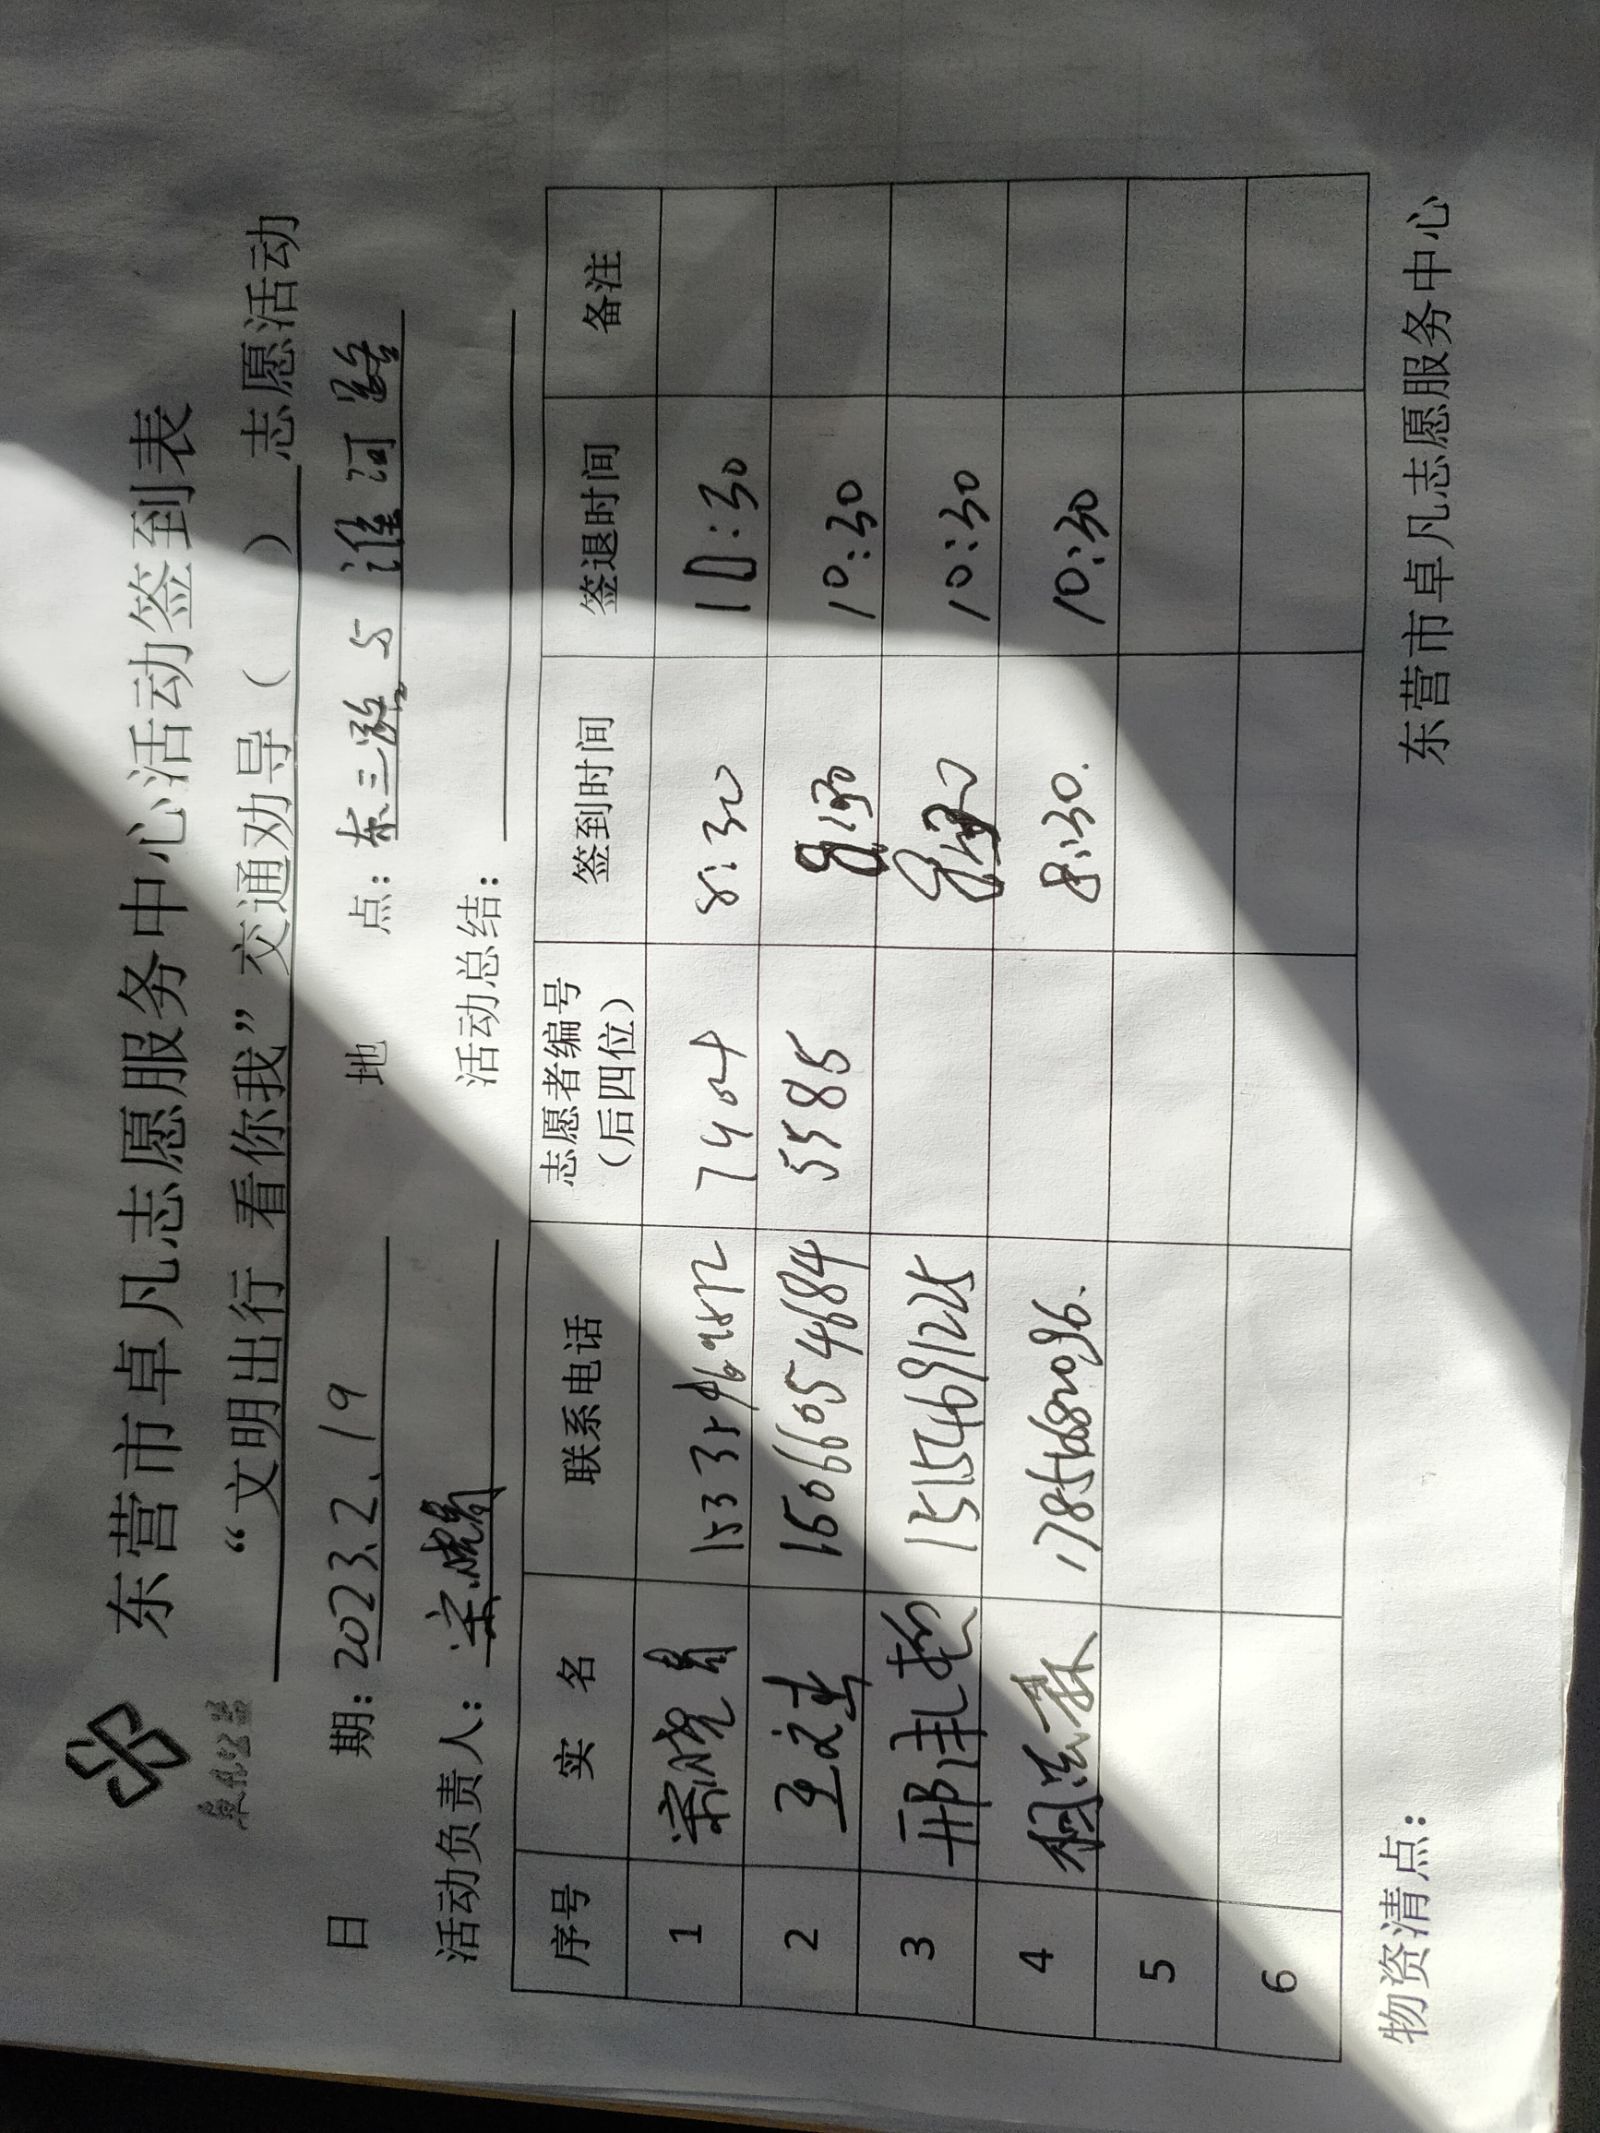 东营市卓凡志愿服务中心活动签到表
“文明出行 看你我”交通劝导（ ）志愿活动
日 期：2023.2.19 地 点：东三路与淮河路
活动负责人： 活动总结：
序号 实 名 联系电话 志愿者编号（后四位） 签到时间 签退时间 备注
1 7404 8:30 10:30
2 15066054684 5585 8:30 10:30
3 15154691225 10:30
4 8:30. 10:30
5
6
物资清点： 东营市卓凡志愿服务中心